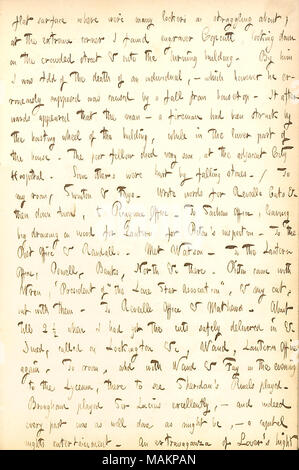 flat surface where were many lookers or straggling about;
at the extreme corner I found engraver Orr's self looking down
on the crowded street & into the burning building. By him
I was told of the death of an individual, — which however he er-
roneously supposed was caused by a fall from housetop. It after
wards appeared that the man — a fireman had been struck by
the hoisting wheel of the building, while in the lower part of
the house. The poor fellow died very soon, at the adjacent City
Hospital. Some others were hurt by falling stones. / To
my room, & Frys. Wrote words for Reveille Cuts &
then down town, to Picayune Office. To Sachem Office, leaving
big drawing on wood for Lantern for Peter's inspection. To the
Post Office & Randall. Met Watson. To the Lantern
Office, Powell, Banks, North & there. Peter came with
Wren, President of "the Lone Star Association", & my cut,
out with them. To Reveille Office & Mathews. About
till 2½ when I had got the cuts safely delivered in &
I used, called on Lockington &c, Waud, Lantern Office
again. To room, and with Waud & Fay in the evening
to the Lyceum, there to see Sheridan's Rivals played.
Brougham played Sir Lucius excellently, — and indeed
every part was as well done as might be, — a capital
nights entertainment. An extravaganza of Lover's light
alamy
Image ID: MAKPAN
www.alamy.com